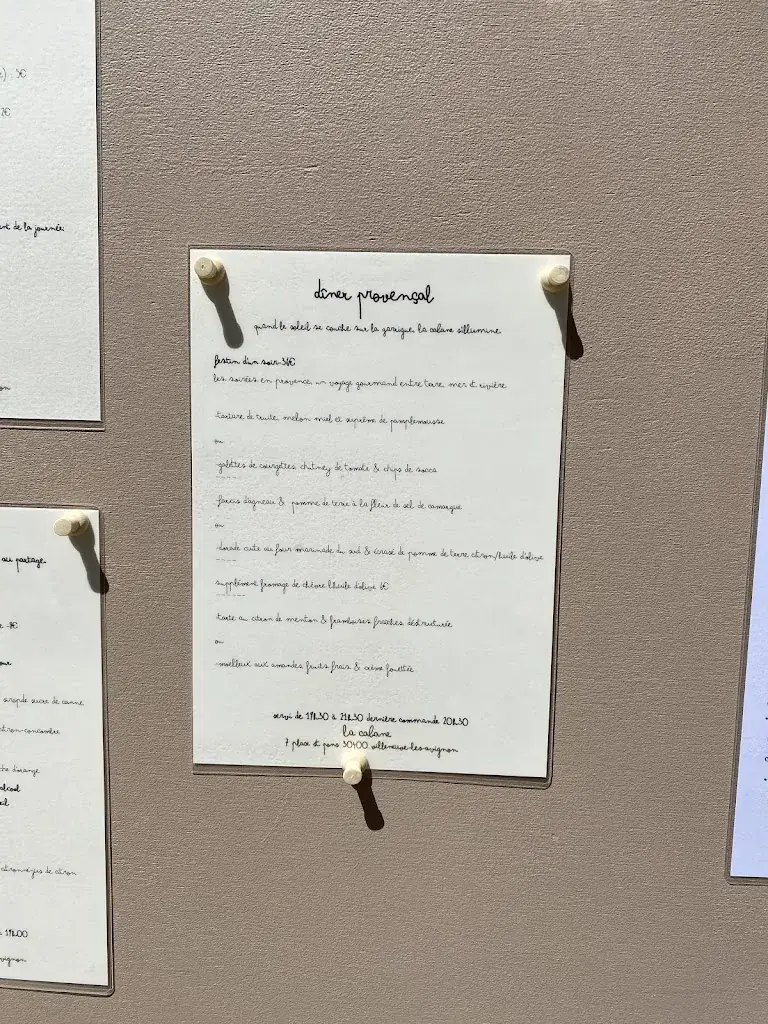 3€
2€
de la journée
dîner provençal
quand le soleil se couche sur la garrigue, la cabane s'illumine
festin d'un soir-34€
les soirées en provence, un voyage gourmand entre terre, mer et rivière
-tartare de truite, melon miel et suprême de pamplemousse
ou
-galettes de courgettes, chutney de tomate & chips de socca
-----
-farcis d'agneau & pomme de terre à la fleur de sel de camargue
ou
-dorade cuite au four marinade du sud & écrasé de pomme de terre citron/huile d'olive
-----
-supplément fromage de chèvre & huile d'olive 6€
-----
-tarte au citron de menton & framboises fraîches déstructurée
ou
-moelleux aux amandes fruits frais & crème fouettée
servi de 19h30 à 21h30 dernière commande 20h30
la cabane
7 place st pons 30400 villeneuve-les-avignon
au partage
sucre de canne
citron-concombre
d'orange
alcool
jus de citron
19h00
avignon